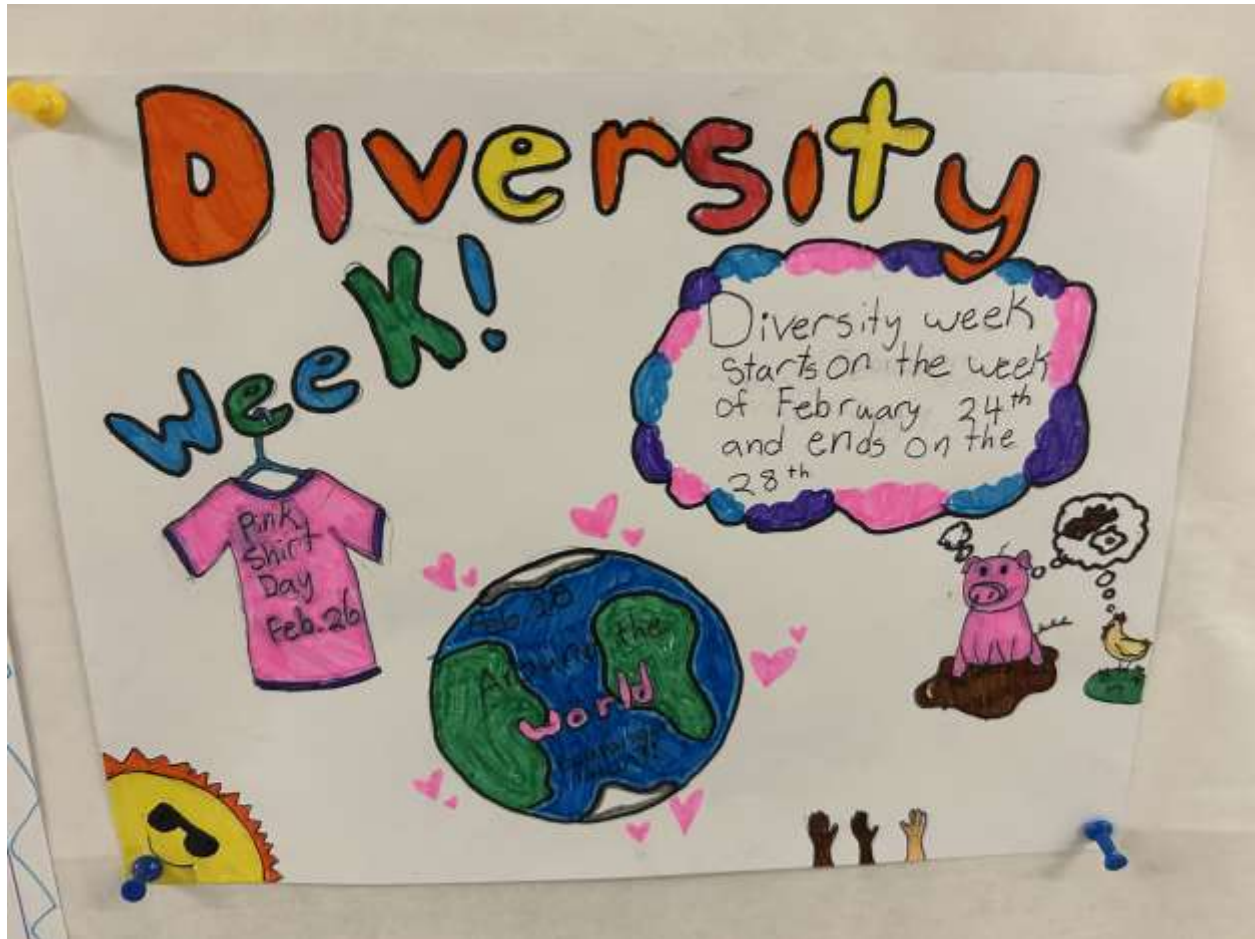 Diversity
Week!
Diversity week
starts on the week
of February 24th
and ends on the
28th
Pink
Shirt
Day
Feb. 26
Feb
Around the
World